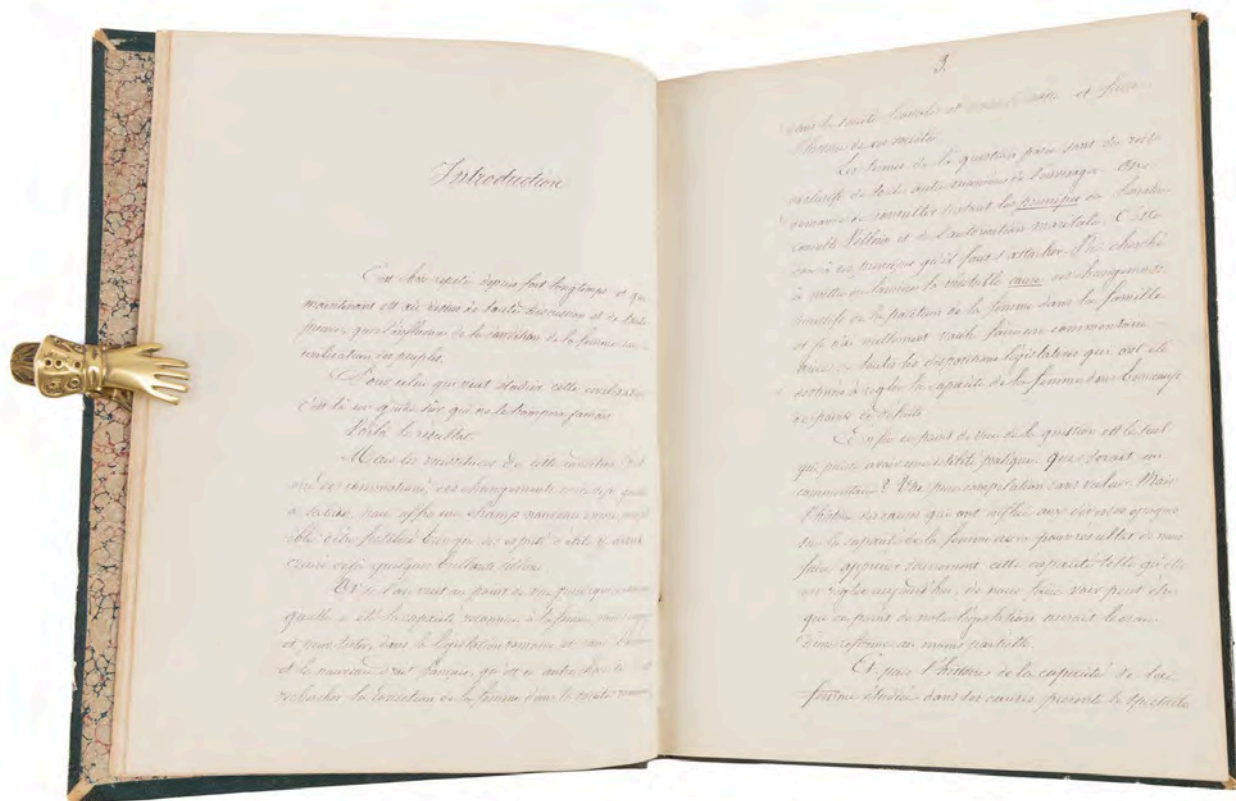 Introduction
C'est chose répétée depuis fort longtemps et qui
maintenant est au dessus de toute discussion et de toute
preuve, que l'influence de la condition de la femme sur la
civilisation des peuples.
Pour celui qui veut étudier cette civilisation
c'est là un guide sûr qui ne le trompera jamais.
Voilà le résultat.
Mais les vicissitudes de cette condition
des innovations, ces changements
champ nouveau
esprits d'élite y aient
creusé déjà quelques brillants sillons.
Et si l'on veut au point de vue
quelle a été la capacité reconnue à la femme pour
et pour tester, dans la législation romaine et dans l'ancien
et le nouveau droit français, qu'est-ce autre chose que
rechercher la condition de la femme dans la société romaine
3.
dans la société et
l'histoire de ces sociétés.
Les termes de la question posée sont du reste
exclusifs de toute autre manière de l'envisager. On
demande de consulter surtout les principes du Sénatus
consulte Velléien et de l'autorisation maritale. C'est
donc à ces principes qu'il faut s'attacher. J'ai cherché
à mettre en lumière la véritable cause des changements
successifs de la position de la femme dans la famille
et je n'ai nullement voulu faire un commentaire
de toutes les dispositions législatives qui ont été
destinées à régler la capacité de la femme dans beaucoup
de points de détails.
Enfin ce point de vue de la question est le seul
qui puisse avoir une utilité pratique. Que serait un
commentaire? Une pure compilation sans valeur. Mais
l'histoire des causes qui ont influé aux diverses époques
sur la capacité de la femme aura pour résultat de nous
faire apprécier sainement cette capacité telle qu'elle
est réglée aujourd'hui, de nous faire voir peut être
que ce point de notre législation aurait besoin
d'une réforme au moins partielle.
Et puis l'histoire de la capacité de la
femme étudiée dans ses causes présente le spectacle